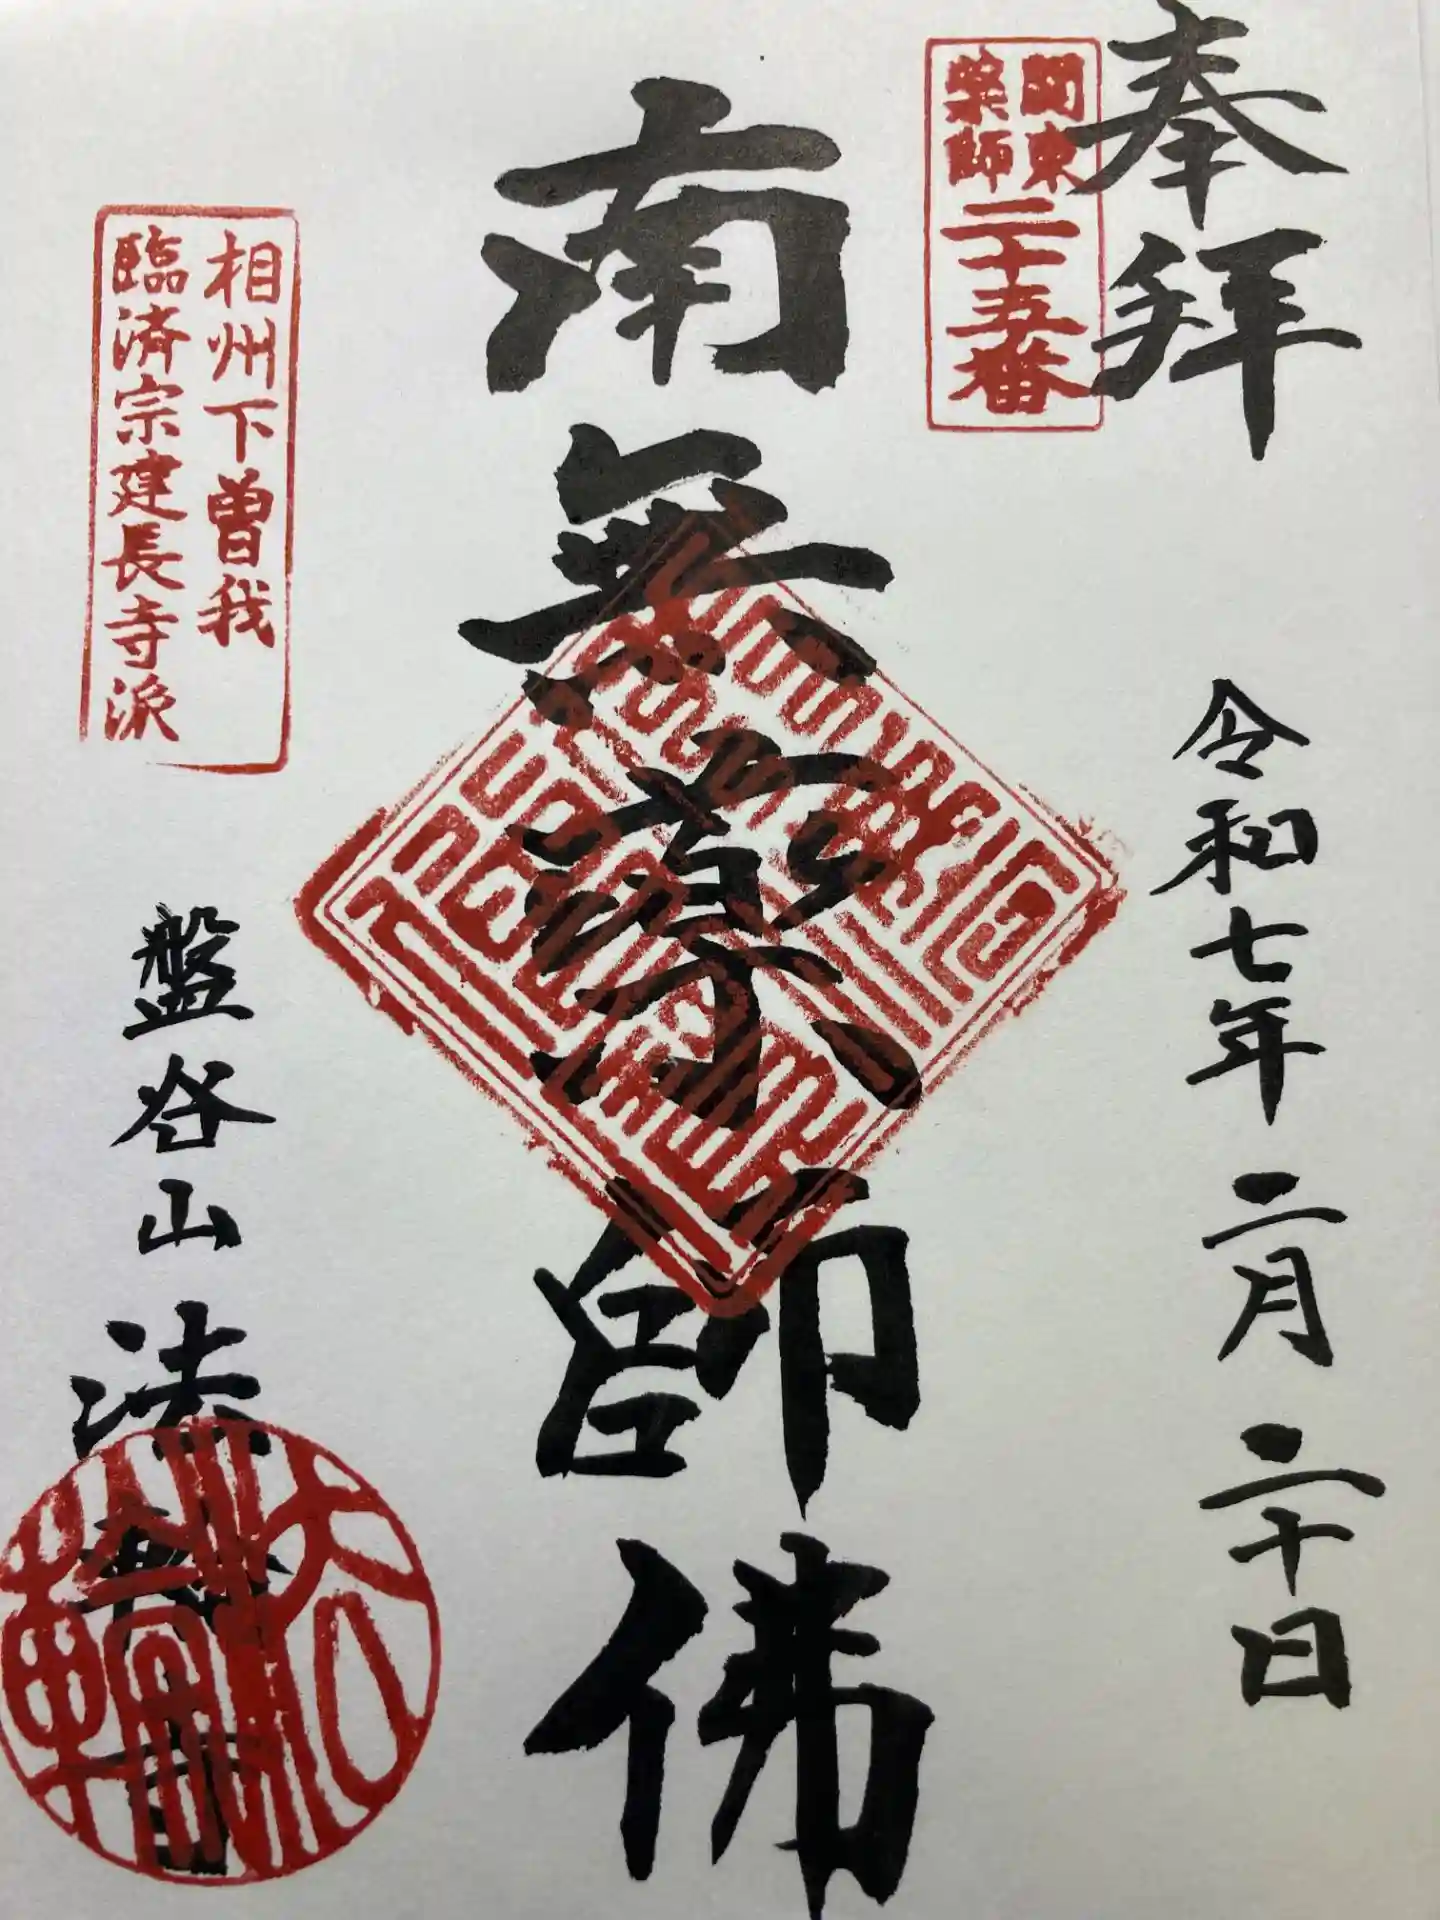 奉拝
関東
薬師
二十五番
令和七年二月二十日
南無薬師佛
相州下曽我
臨済宗建長寺派
盤谷山法輪寺